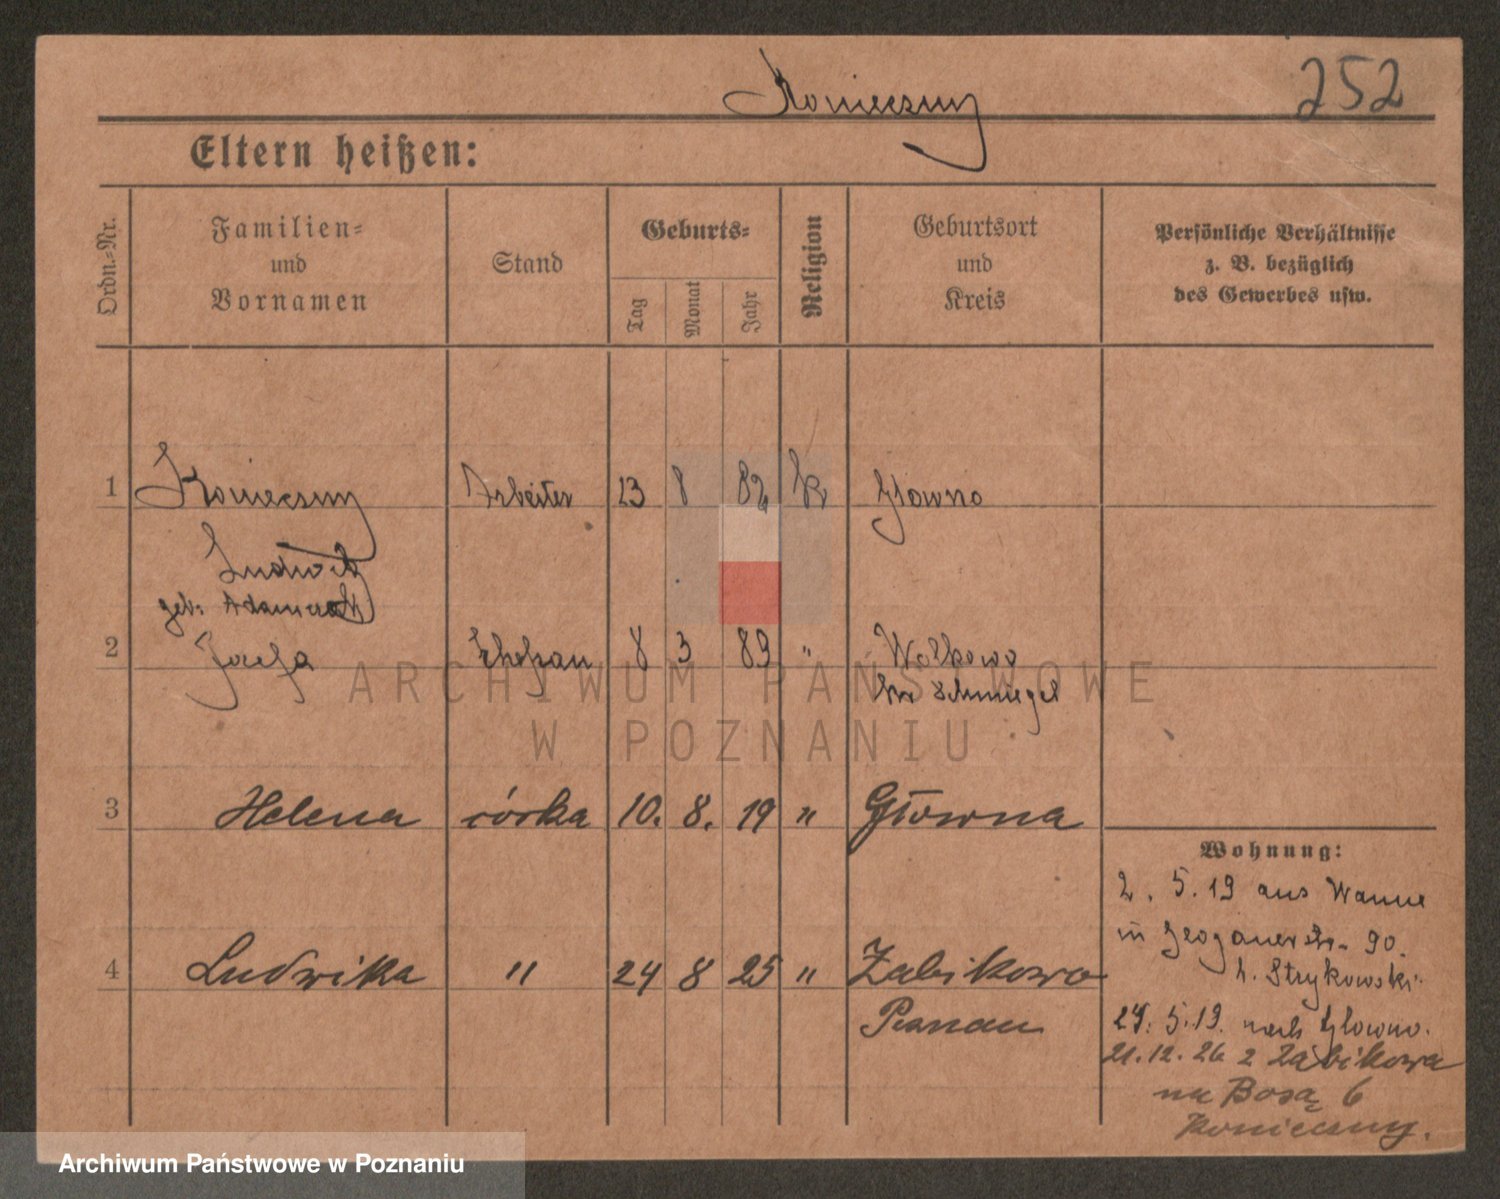 Konieczny
252
Eltern heißen:
Ordn.-Nr.
Familien-
und
Vornamen
Stand
Geburts-
Tag
Monat
Jahr
Religion
Geburtsort
und
Kreis
Persönliche Verhältnisse
z. B. bezüglich
des Gewerbes usw.
1 Konieczny Arbeiter 23 8 82 k Glowno
Ludwig
geb. Adamczak
2 Josefa Ehefrau 8 3 89 " Wolkowo
Kr Schmiegel
3 Helena córka 10. 8. 19 " Główna
4 Ludwika " 24 8 25 " Zabikowo
Poznań
Wohnung:
2. 5. 19 aus Wanne
in Glogauerstr. 90.
b. Strykowski
27. 5. 19. nach Glowno.
21. 12. 26 z Zabikowa
na Bosą 6
Konieczny.
ARCHIWUM PAŃSTWOWE
W POZNANIU
Archiwum Państwowe w Poznaniu